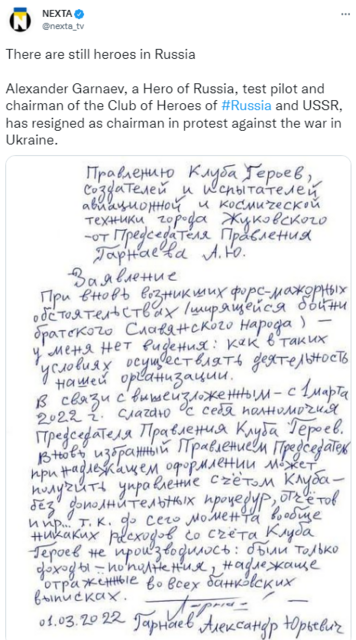 NEXTA
@nexta_tv
There are still heroes in Russia
Alexander Garnaev, a Hero of Russia, test pilot and
chairman of the Club of Heroes of #Russia and USSR,
has resigned as chairman in protest against the war in
Ukraine.
Правлению Клуба Героев,
создателей и испытателей
авиационной и космической
техники города Жуковского
-от Председателя Правления
Гарнаева А.Ю.
Заявление
При вновь возникших форс-мажорных
обстоятельствах (ширящейся бойни
братского Славянского народа) —
у меня нет видения: как в таких
условиях осуществлять деятельность
нашей организации.
В связи с вышеизложенным – с 1 марта
2022 г. слагаю с себя полномочия
Председателя Правления Клуба Героев.
Вновь избранный Правлением Председатель
при надлежащем оформлении может
получить управление счётом Клуба-
без дополнительных процедур, отчётов
и пр... т.к. до сего момента вообще
никаких расходов со счёта Клуба
Героев не производилось: были только
доходы – пополнения, надлежаще
отраженные во всех банковских
выписках.
01.03.2022 Гарнаев Александр Юрьевич